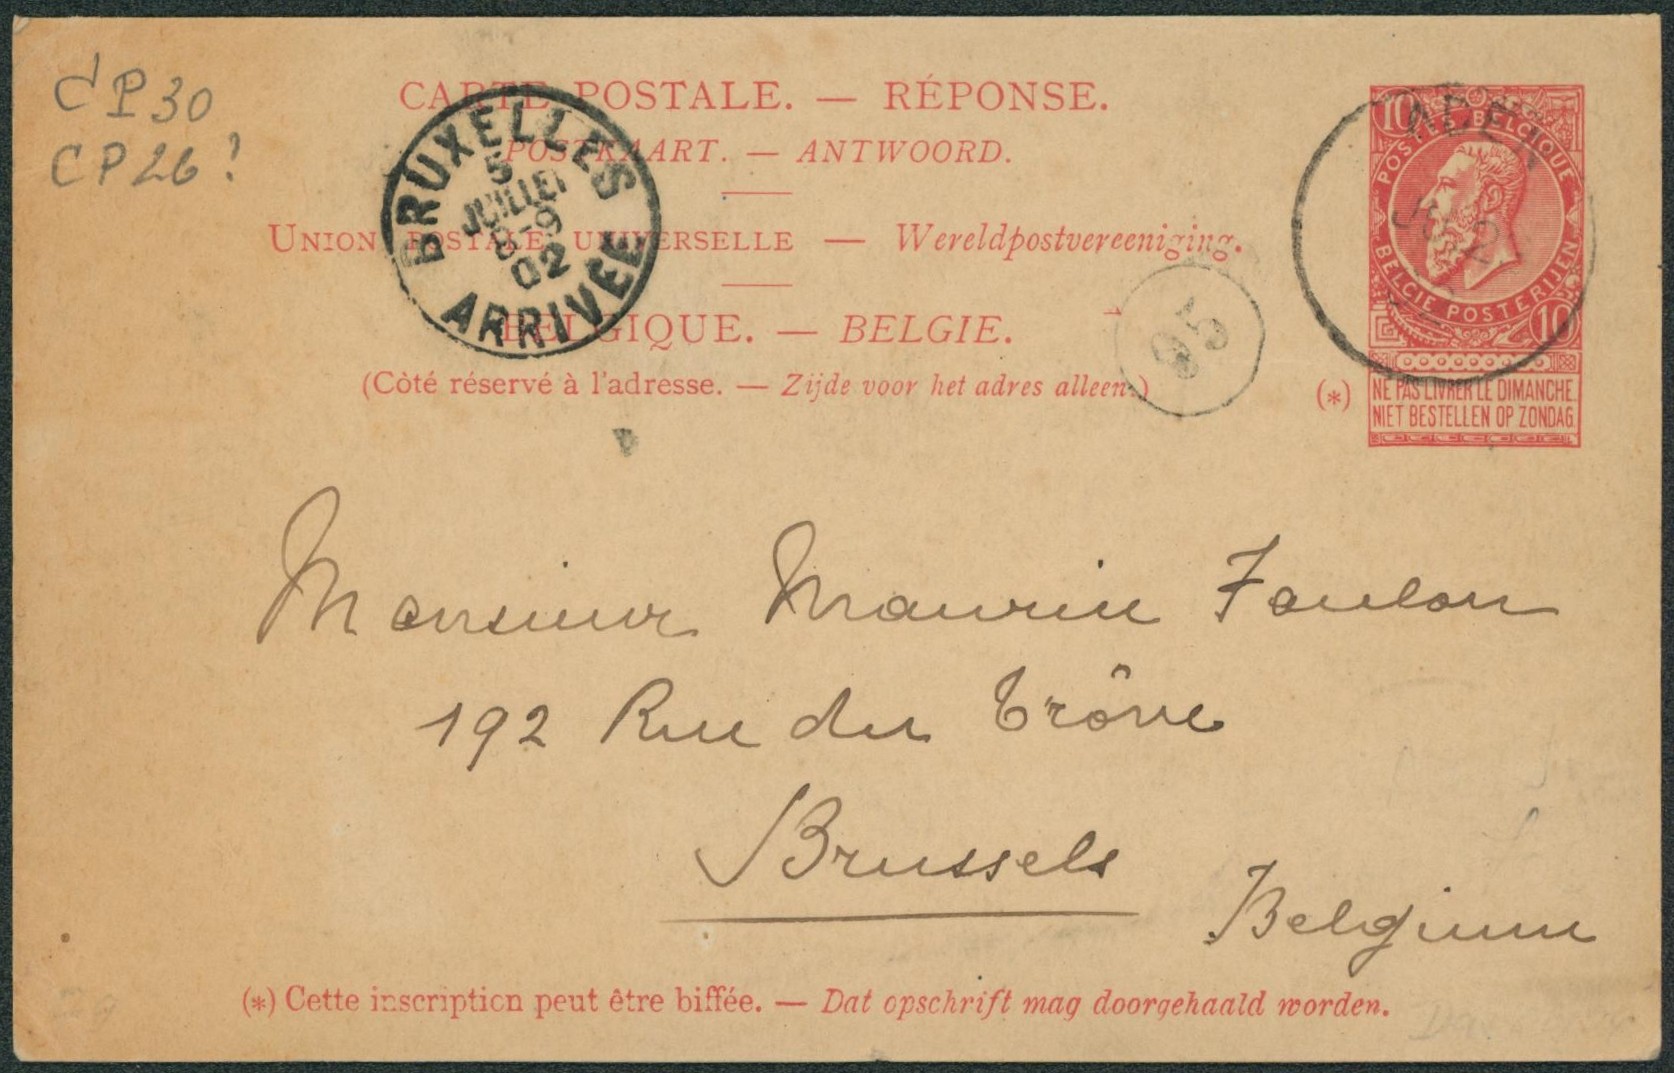 CP30
CP26?
CARTE POSTALE. — RÉPONSE.
POSTKAART. — ANTWOORD.
UNION POSTALE UNIVERSELLE — Wereldpostvereeniging.
BELGIQUE. — BELGIE.
(Côté réservé à l'adresse. — Zijde voor het adres alleen.)
BRUXELLES
5
JUILLET
8-9
02
ARRIVEE
95
ADEN
JU 2
10
POSTES BELGIQUE
BELGIE POSTERIJEN
10
(*)
NE PAS LIVRER LE DIMANCHE.
NIET BESTELLEN OP ZONDAG.
Monsieur Maurice Foulon
192 Rue du Trône
Brussels
Belgium
(*) Cette inscription peut être biffée. — Dat opschrift mag doorgehaald worden.